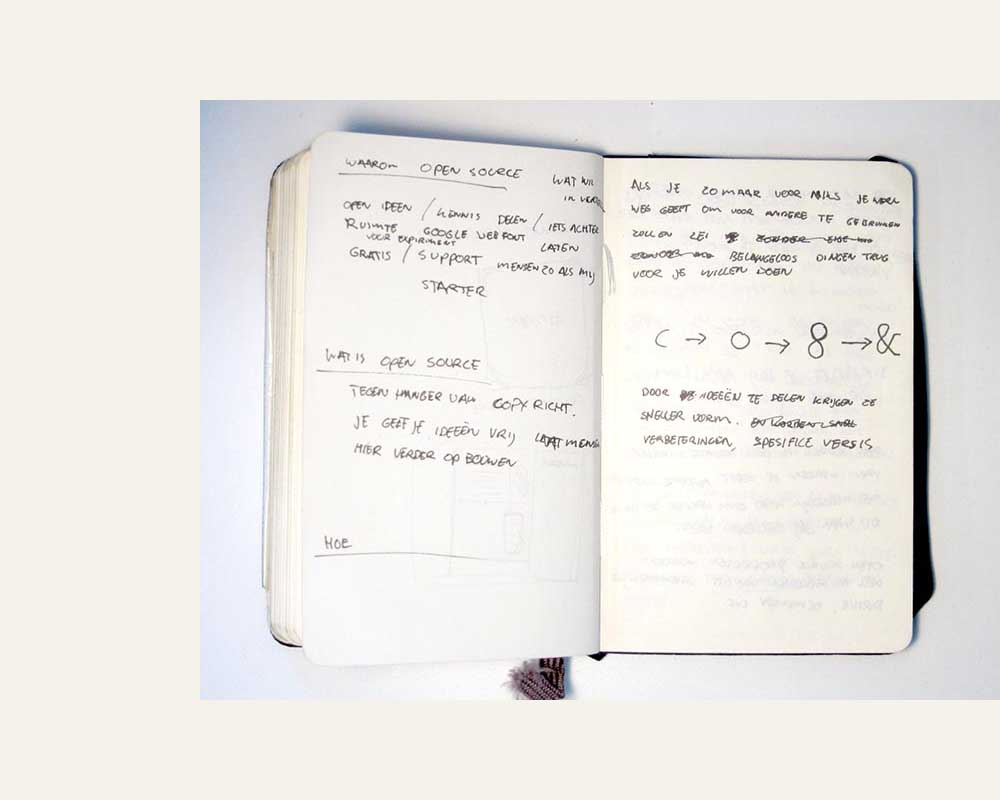 WAAROM OPEN SOURCE
WAT WIL
IN
OPEN IDEEN / KENNIS DELEN / IETS ACHTER
RUIMTE GOOGLE WEBFONT LATEN
VOOR EXPIRIMENT
GRATIS / SUPPORT MENSEN ZO ALS MIJ
STARTER
WAT IS OPEN SOURCE
TEGEN HANGER VAN COPY RICHT.
JE GEEF JE IDEEËN VRIJ LAAT MENSEN
HIER VERDER OP BOUWEN
HOE
ALS JE ZO MAAR VOOR NIKS JE WERK
WEG GEEFT OM VOOR ANDERE TE GEBRUIKEN
ZULLEN ZEI ZONDER
BELANGELOOS DINGEN TRUG
VOOR JE WILLEN DOEN
C → O → 8 → &
DOOR IDEEËN TE DELEN KRIJGEN ZE
SNELLER VORM.
VERBETERINGEN, SPESIFICE VERSIS